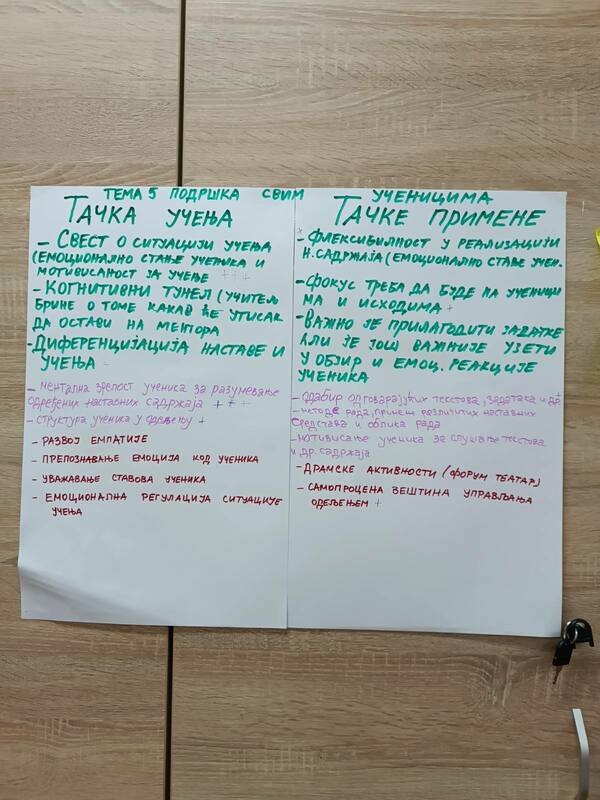 ТЕМА 5 ПОДРШКА СВИМ УЧЕНИЦИМА
ТАЧКА УЧЕЊА
– СВЕСТ О СИТУАЦИЈИ УЧЕЊА
(ЕМОЦИОНАЛНО СТАЊЕ УЧЕНИКА И
МОТИВИСАНОСТ ЗА УЧЕЊЕ +++
– КОГНИТИВНИ ТУНЕЛ (УЧИТЕЉ
БРИНЕ О ТОМЕ КАКАВ ЋЕ УТИСАК
ДА ОСТАВИ НА МЕНТОРА
– ДИФЕРЕНЦИЈАЦИЈА НАСТАВЕ И
УЧЕЊА +
– ментална зрелост ученика за разумевање
одређених наставних садржаја +++
– структура ученика у одељењу +
– РАЗВОЈ ЕМПАТИЈЕ
– ПРЕПОЗНАВАЊЕ ЕМОЦИЈА КОД УЧЕНИКА
– УВАЖАВАЊЕ СТАВОВА УЧЕНИКА
– ЕМОЦИОНАЛНА РЕГУЛАЦИЈА СИТУАЦИЈЕ
УЧЕЊА
ТАЧКЕ ПРИМЕНЕ
– ФЛЕКСИБИЛНОСТ У РЕАЛИЗАЦИЈИ
Н. САДРЖАЈА (ЕМОЦИОНАЛНО СТАЊЕ УЧЕН.
– ФОКУС ТРЕБА ДА БУДЕ НА УЧЕНИЦИ
МА И ИСХОДИМА +
– ВАЖНО ЈЕ ПРИЛАГОДИТИ ЗАДАТКЕ
АЛИ ЈЕ ЈОШ ВАЖНИЈЕ УЗЕТИ
У ОБЗИР И ЕМОЦ. РЕАКЦИЈЕ
УЧЕНИКА
– одабир одговарајућих текстова, задатака и др +
– методе рада, примена различитих наставних
средстава и облика рада
– мотивисање ученика за слушање текстова
и др. садржаја
– ДРАМСКЕ АКТИВНОСТИ (ФОРУМ ТЕАТАР)
– САМОПРОЦЕНА ВЕШТИНА УПРАВЉАЊА
ОДЕЉЕЊЕМ +